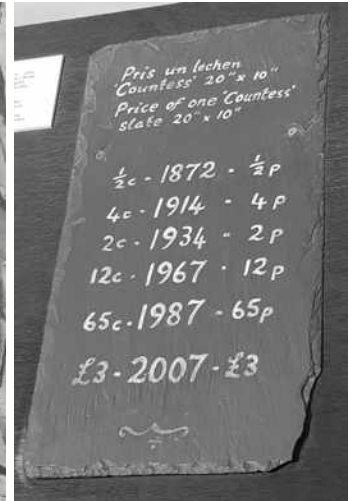 Pris un lechen
'Countess' 20" x 10"
Price of one 'Countess'
slate 20" x 10"
½c - 1872 - ½p
4c - 1914 - 4p
2c - 1934 - 2p
12c - 1967 - 12p
65c - 1987 - 65p
£3 - 2007 - £3